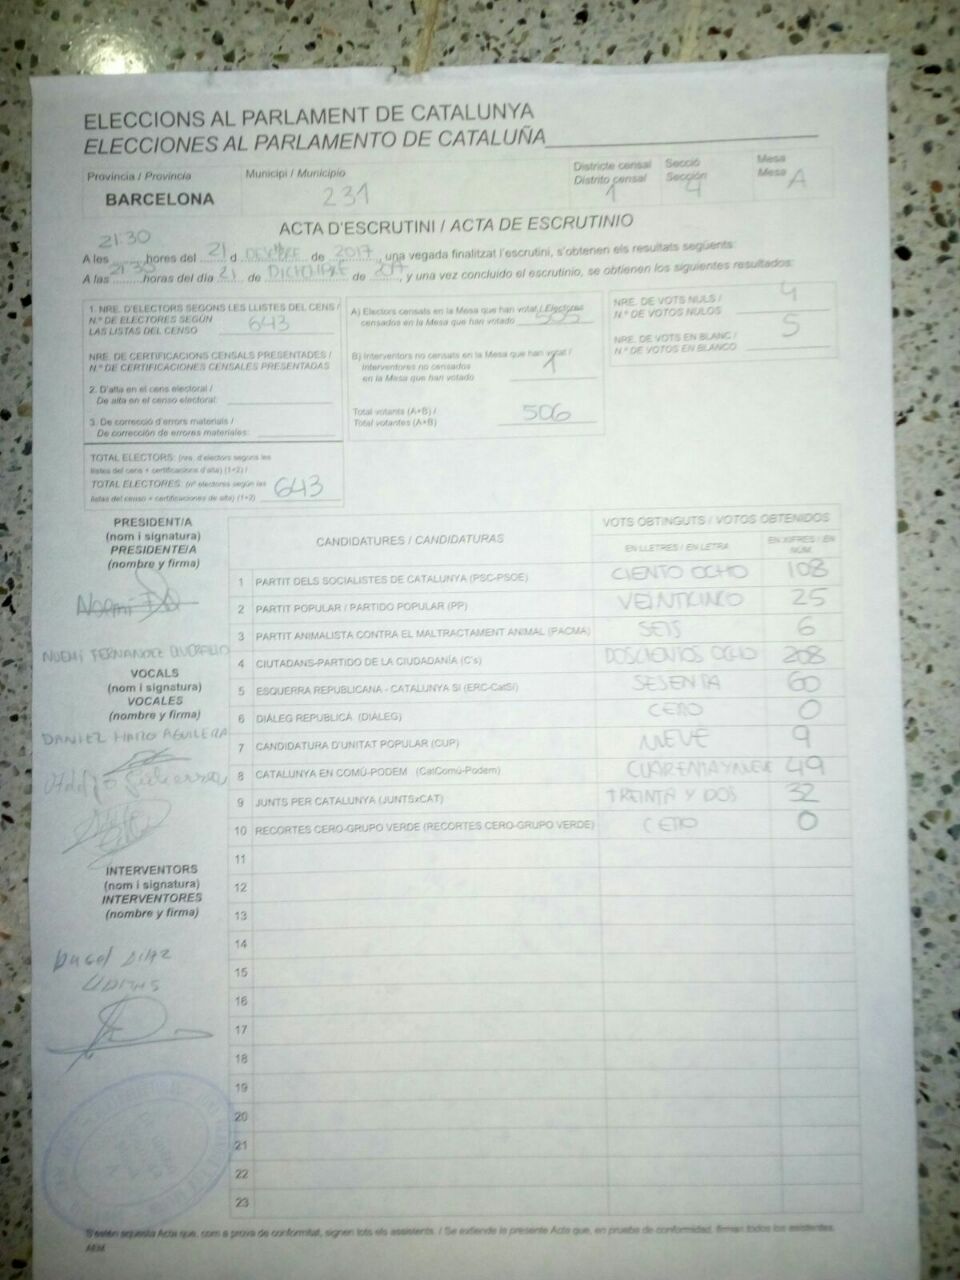 ELECCIONS AL PARLAMENT DE CATALUNYA
ELECCIONES AL PARLAMENTO DE CATALUÑA
Província / Provincia
BARCELONA
Municipi / Municipio
231
Districte censal
Distrito censal
1
Secció
Sección
4
Mesa
Mesa
A
ACTA D'ESCRUTINI / ACTA DE ESCRUTINIO
21:30
A les hores del 21 d de 2017, una vegada finalitzat l'escrutini, s'obtenen els resultats següents:
21:30
A las horas del día 21 de DICIEMBRE de 2017, y una vez concluido el escrutinio, se obtienen los siguientes resultados:
1. NRE. D'ELECTORS SEGONS LES LLISTES DEL CENS /
N.º DE ELECTORES SEGÚN
LAS LISTAS DEL CENSO 643
NRE. DE CERTIFICACIONS CENSALS PRESENTADES /
N.º DE CERTIFICACIONES CENSALES PRESENTADAS
2. D'alta en el cens electoral /
De alta en el censo electoral:
3. De correcció d'errors materials /
De corrección de errores materiales:
TOTAL ELECTORS: (nre. d'electors segons les
llistes del cens + certificacions d'alta) (1+2) /
TOTAL ELECTORES: (nº electores según las
listas del censo + certificaciones de alta) (1+2) 643
A) Electors censats en la Mesa que han votat / Electores
censados en la Mesa que han votado 505
B) Interventors no censats en la Mesa que han votat /
Interventores no censados
en la Mesa que han votado 1
Total votants (A+B) /
Total votantes (A+B) 506
NRE. DE VOTS NULS /
N.º DE VOTOS NULOS 4
NRE. DE VOTS EN BLANC /
N.º DE VOTOS EN BLANCO 5
PRESIDENT/A
(nom i signatura)
PRESIDENTE/A
(nombre y firma)
Noemi
NOEMI FERNANDEZ
VOCALS
(nom i signatura)
VOCALES
(nombre y firma)
DANIEL HARO AGUILERA
INTERVENTORS
(nom i signatura)
INTERVENTORES
(nombre y firma)
CANDIDATURES / CANDIDATURAS
VOTS OBTINGUTS / VOTOS OBTENIDOS
EN LLETRES / EN LETRA
EN XIFRES / EN NÚM.
1 PARTIT DELS SOCIALISTES DE CATALUNYA (PSC-PSOE) CIENTO OCHO 108
2 PARTIT POPULAR / PARTIDO POPULAR (PP) VEINTICINCO 25
3 PARTIT ANIMALISTA CONTRA EL MALTRACTAMENT ANIMAL (PACMA) SEIS 6
4 CIUTADANS-PARTIDO DE LA CIUDADANÍA (C's) DOSCIENTOS OCHO 208
5 ESQUERRA REPUBLICANA - CATALUNYA SÍ (ERC-CatSí) SESENTA 60
6 DIÀLEG REPUBLICÀ (DIÀLEG) CERO 0
7 CANDIDATURA D'UNITAT POPULAR (CUP) NUEVE 9
8 CATALUNYA EN COMÚ-PODEM (CatComú-Podem) CUARENTA Y NUEVE 49
9 JUNTS PER CATALUNYA (JUNTSxCAT) TREINTA Y DOS 32
10 RECORTES CERO-GRUPO VERDE (RECORTES CERO-GRUPO VERDE) CERO 0
11
12
13
14
15
16
17
18
19
20
21
22
23
S'estén aquesta Acta que, com a prova de conformitat, signen tots els assistents. / Se extiende la presente Acta que, en prueba de conformidad, firman todos los asistentes.